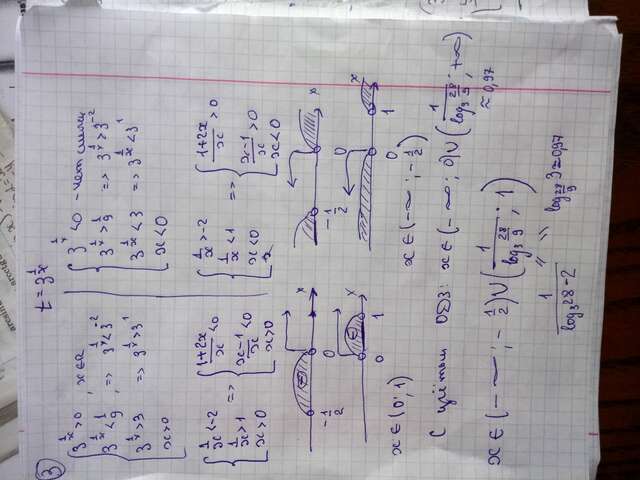 3
t = 3^{1/x}
{ 3^{1/x} > 0, x ∈ R
3^{1/x} < 1/9 => 3^{1/x} < 3^{-2}
3^{1/x} > 3 => 3^{1/x} > 3^1
x > 0
{ 3^{1/x} < 0 - нет смысла
3^{1/x} > 1/9 => 3^{1/x} > 3^{-2}
3^{1/x} < 3 => 3^{1/x} < 3^1
x < 0
{ 1/x < -2
1/x > 1
x > 0
=> { (1+2x)/x < 0
(x-1)/x < 0
x > 0
{ 1/x > -2
1/x < 1
x < 0
=> { (1+2x)/x > 0
(x-1)/x > 0
x < 0
-1/2 0 x
0 1 x
-1/2 0 x
0 1 x
x ∈ (0; 1)
x ∈ (-∞; -1/2)
С учётом ОДЗ: x ∈ (-∞; 0) ∪ (1/log_3 28/9; +∞)
≈ 0,97
x ∈ (-∞; -1/2) ∪ (1/log_3 28/9; 1)
1/(log_3 28 - 2)
log_{28/9} 3 ≈ 0,97